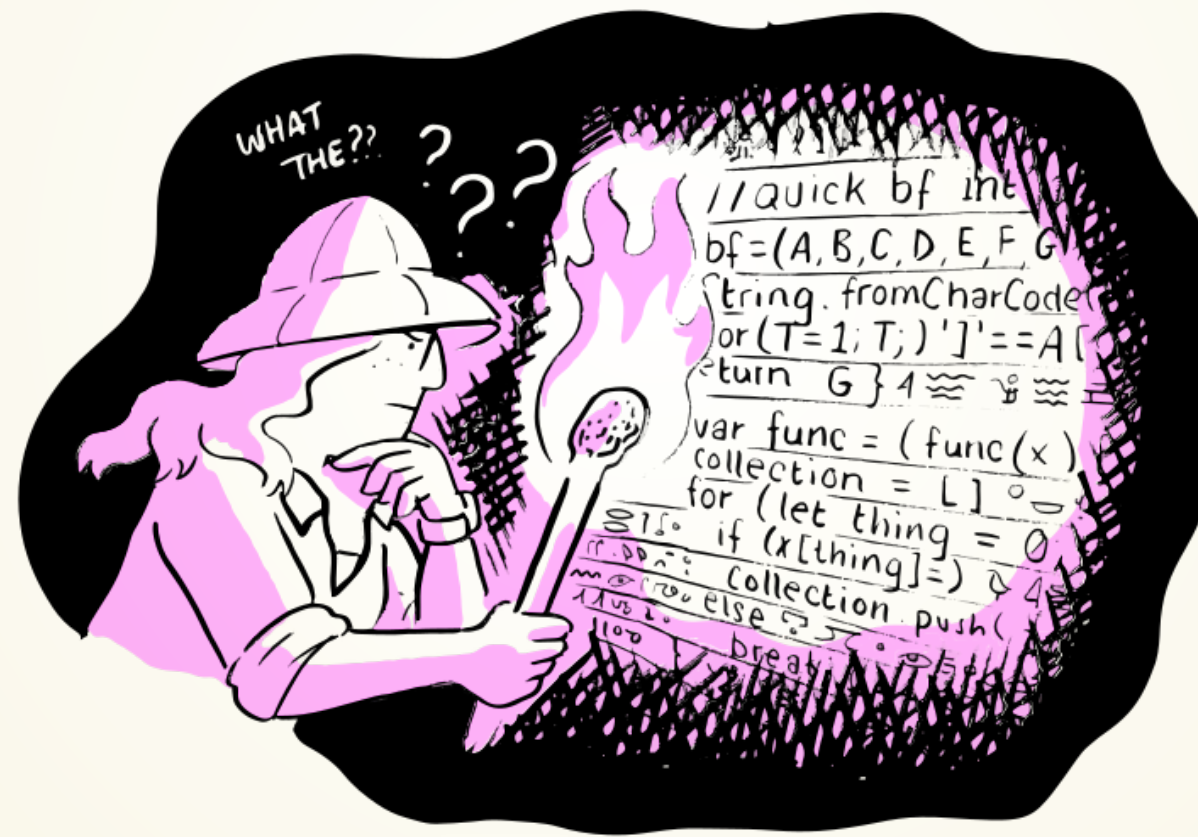 WHAT
THE??
? ? ?
//QUICK bf int
bf=(A,B,C,D,E,F,G
String.fromCharCode(
or(T=1;T;)']'==A[
eturn G} 1
var func = (func(x)
collection = [] 
for (let thing = 0
if (x[thing]=)
collection push(
else
break
1100